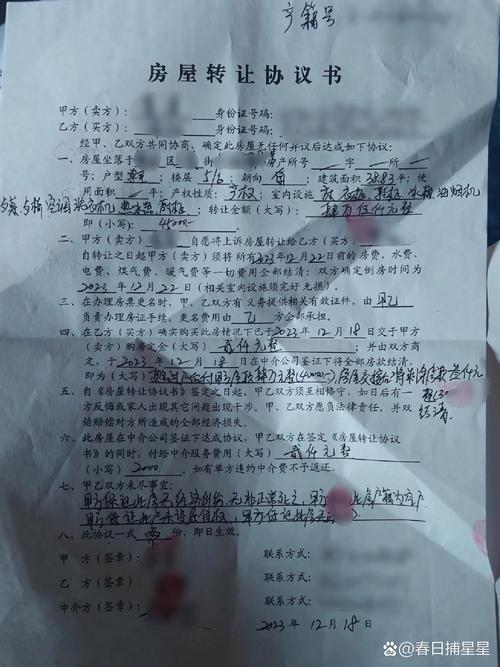 产籍号
房屋转让协议书
甲方（卖方）：身份证号码：
乙方（买方）：身份证号码：
经甲、乙双方共同协商，确定此房屋无任何异议后达成如下协议：
一、房屋坐落于 区 街 房产所号 一 字 一 所 一
号；户型 单室；楼层 5/6；朝向 南；建筑面积 38.83 平；使
用面积 一 平；产权性质：产权；室内设施 床 衣柜 鞋柜 水 油烟机
空调 洗衣机 热水器；转让金额（大写）：肆万伍仟元整
即（小写）：45000-
二、甲方（卖方） 自愿将上诉房屋转让给乙方（买方），
自转让之日起甲方（卖方）须将所有2023年12月22日前的房费、水费、
电费、煤气费、暖气费等一切费用全部结清；双方确定倒房时间为
2023年12月22日（相关室内设施须完好无损）。
三、在办理房票更名时，甲、乙双方有义务提供相关有效证件，由 甲乙
负责办理房证手续，更名费用由 乙 方全部承担。
四、在乙方（买方）确实购买此房情况下已于2023年12月18日交于甲方
（卖方）购房定金（大写）贰仟元整，并由双方商
定，于2023年12月18日在中介公司签证下将全部房款结清，
即为（大写）肆万元整（40000-），房屋交接后将 叁仟元
结清
五、自《房屋转让协议书》签定之日起，甲乙双方须互相恪守，如日后有一
方反悔或家人出现其它问题出现干涉，甲、乙双方愿负法律责任，并双
倍赔偿对方所造成的全部经济损失。
六、此房屋在中介公司签证下达成协议，甲乙双方在签定《房屋转让协议
书》的同时，付给中介服务费用（大写）贰仟元整
（小写）2000，如有单方违约中介费不予退还。
七、甲乙双方未尽事宜：
甲方保证此房无经济纠纷，无非正常死亡，此房户籍为空户
甲方保证此房
八、此协议一式 叁 份，即日生效。
甲方（签章）：联系方式：
乙方（签章）：联系方式：
中介方（签章）：联系方式：
2023年12月18日
@春日捕星星